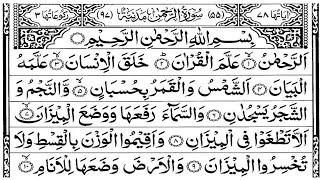 اٰیَاتُهَا ٧٨ (٥٥) سُوْرَةُ الرَّحْمٰنِ مَدَنِيَّةٌ (٩٧) رُكُوْعَاتُهَا ٣
بِسْمِ اللهِ الرَّحْمٰنِ الرَّحِيْمِ
اَلرَّحْمٰنُ ۙ﴿١﴾ عَلَّمَ الْقُرْاٰنَ ؕ﴿٢﴾ خَلَقَ الْاِنْسَانَ ۙ﴿٣﴾ عَلَّمَهُ
الْبَيَانَ ﴿٤﴾ اَلشَّمْسُ وَالْقَمَرُ بِحُسْبَانٍ ﴿٥﴾ وَّالنَّجْمُ وَ
الشَّجَرُ يَسْجُدٰنِ ﴿٦﴾ وَالسَّمَآءَ رَفَعَهَا وَوَضَعَ الْمِيْزَانَ ۙ﴿٧﴾
اَلَّا تَطْغَوْا فِي الْمِيْزَانِ ﴿٨﴾ وَاَقِيْمُوا الْوَزْنَ بِالْقِسْطِ وَلَا
تُخْسِرُوا الْمِيْزَانَ ﴿٩﴾ وَالْاَرْضَ وَضَعَهَا لِلْاَنَامِ ۙ﴿١٠﴾